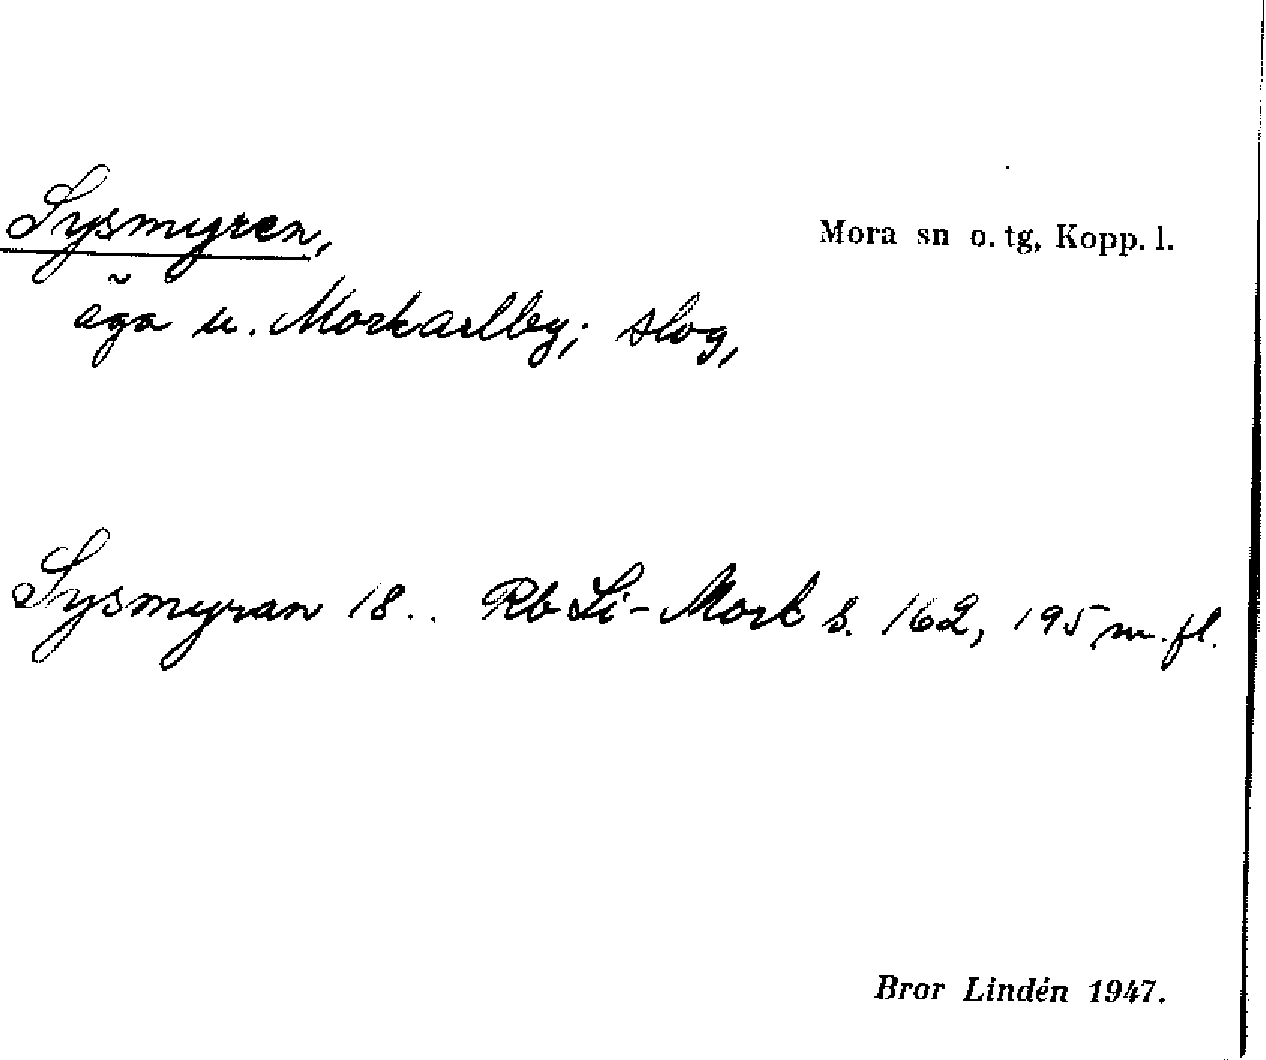 Sysmyren,
Mora sn o. tg, Kopp. l.
äga u. Morkarlby; slog,
Sysmyran 18.. Rb Li-Mork s. 162, 195 m. fl.
Bror Lindén 1947.